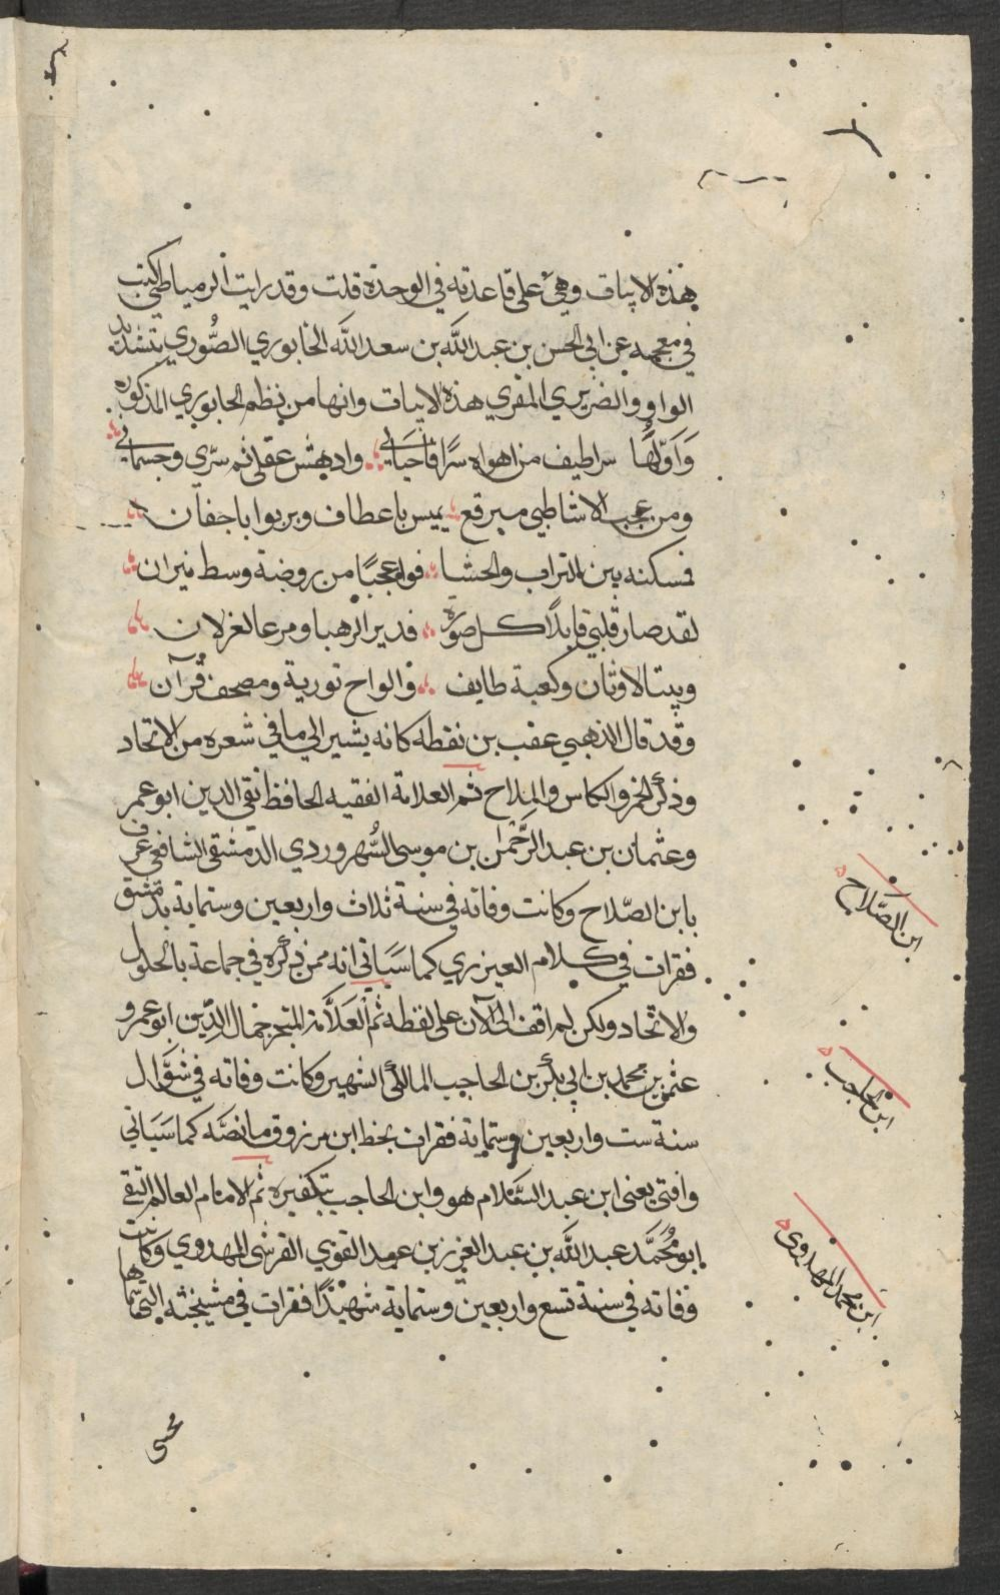 هذه الابيات وهي على قاعدته في الوحدة قلت وقد رايت الدمياطي كتب
في معجمه عن ابي الحسن بن عبد الله بن سعد الله الخابوري الصُّوري بتشديد
الواو والضريري المقري هذه الابيات وانها من نظم الخابوري المذكور
وَاَوّلهَا سر اطيف من اهواه سرًا فاحياني وادهش عقلي ثم سرّي وجسماني
ومن عجب الاشاطبي مبرقع يميس باعطاف ويربوا باجفان
فسكنه بين التراب والحشا فوا عجبًا من روضة وسط نيران
لقد صار قلبي قابلًا كل صورة فدير الرهبا ومرعا لغزلان
وبيت الاوثان وكعبة طايف والواح تورية ومصحف قرآن
وقد قال الذهبي عقب بن نقطه كانه يشير الي ما في شعره من الاتحاد
وذكر الخمر والكاس والملاح ثم العلامة الفقيه الحافظ تقي الدين ابو عمر
وعثمان بن عبد الرَّحمٰن بن موسى السُّهروردي الدمشقي الشافعي عرف
بابن الصّلاح وكانت وفاته في سنة ثلاث واربعين وستماية بدمشق
فقرات في كلام العيزري كما سَيَاتي انه ممن ذكره في جماعة بالحلول
والاتحاد ولكن لم اقف الى الآن على لفظه ثم العَلاَّمة المتبحر جمال الدِّين ابو عمرو
عثمٰن بن محمد بن ابي بكر بن الحاجب المالكي الشهير وكانت وفاته في شوَّال
سنة ست واربعين وستماية فقرات بخط ابن مرزوق ما نصَّه كما سَيَاتي
وافتى يعني ابن عبد السَّلام هو وابن الحاجب بتكفيره ثم الامام العالم التقي
ابو مُحمَّد عبد الله بن عبد العزيز بن عبد القوي القرشي المهدوي وَكانت
وفاته في سنة تسع واربعين وستماية شهيدًا فقرات في مشيخته التي سماها
ابن الصّلاح
ابن الحاجب
ابن محمد المهدوي